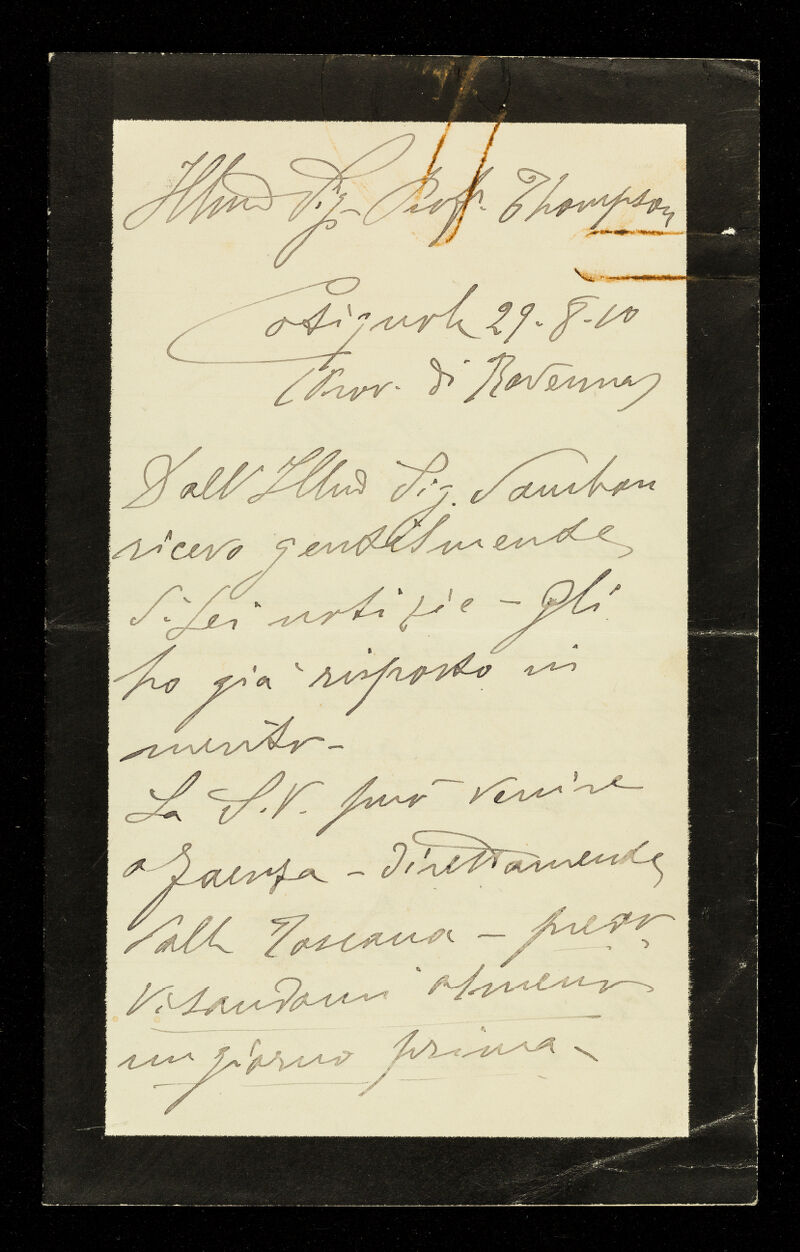 Illmo Sig. Prof. Thompson
Cotignola 29-8-10
(Prov. di Ravenna)
Dall'Illmo Sig. Sambon
ricevo gentilmente
di Lei notizie - Gli
ho già risposto in
merito -
La S.V. può venire
a Faenza - direttamente
dalla Toscana - preav-
visandomi almeno
un giorno prima -